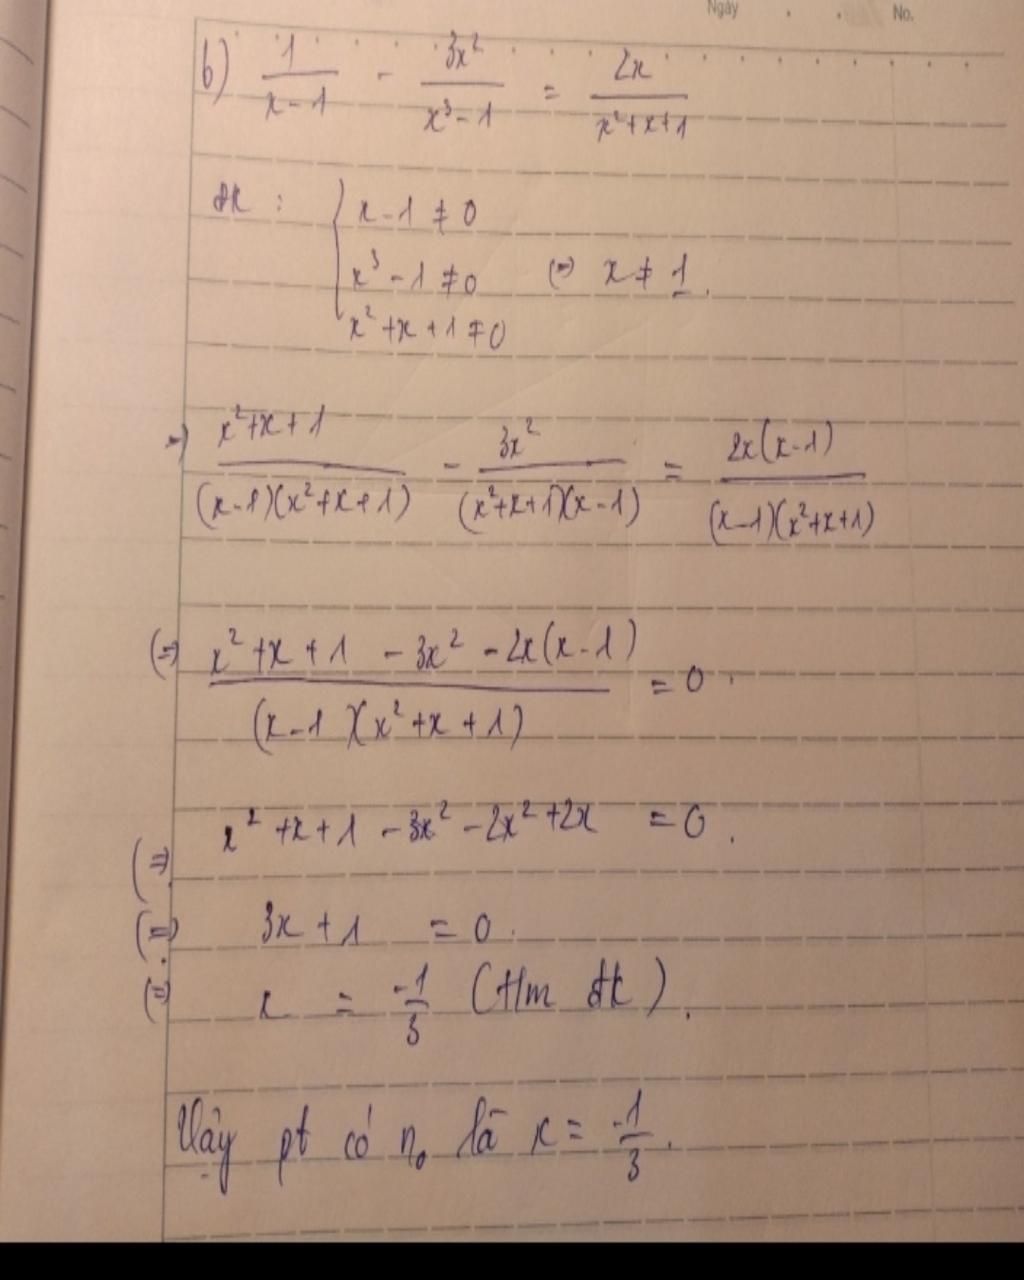 Ngày . . No.
b) 1/(x-1) - 3x²/(x³-1) = 2x/(x²+x+1)
đk : { x-1 ≠ 0
x³-1 ≠ 0 (=) x ≠ 1.
x²+x+1 ≠ 0
=) (x²+x+1)/((x-1)(x²+x+1)) - 3x²/((x²+x+1)(x-1)) = 2x(x-1)/((x-1)(x²+x+1))
(=) (x²+x+1 - 3x² - 2x(x-1))/((x-1)(x²+x+1)) = 0.
(=) x²+x+1 - 3x² - 2x² + 2x = 0.
(=) 3x+1 = 0.
(=) x = -1/3 (t/m đk).
Vậy pt có n₀ là x = -1/3.